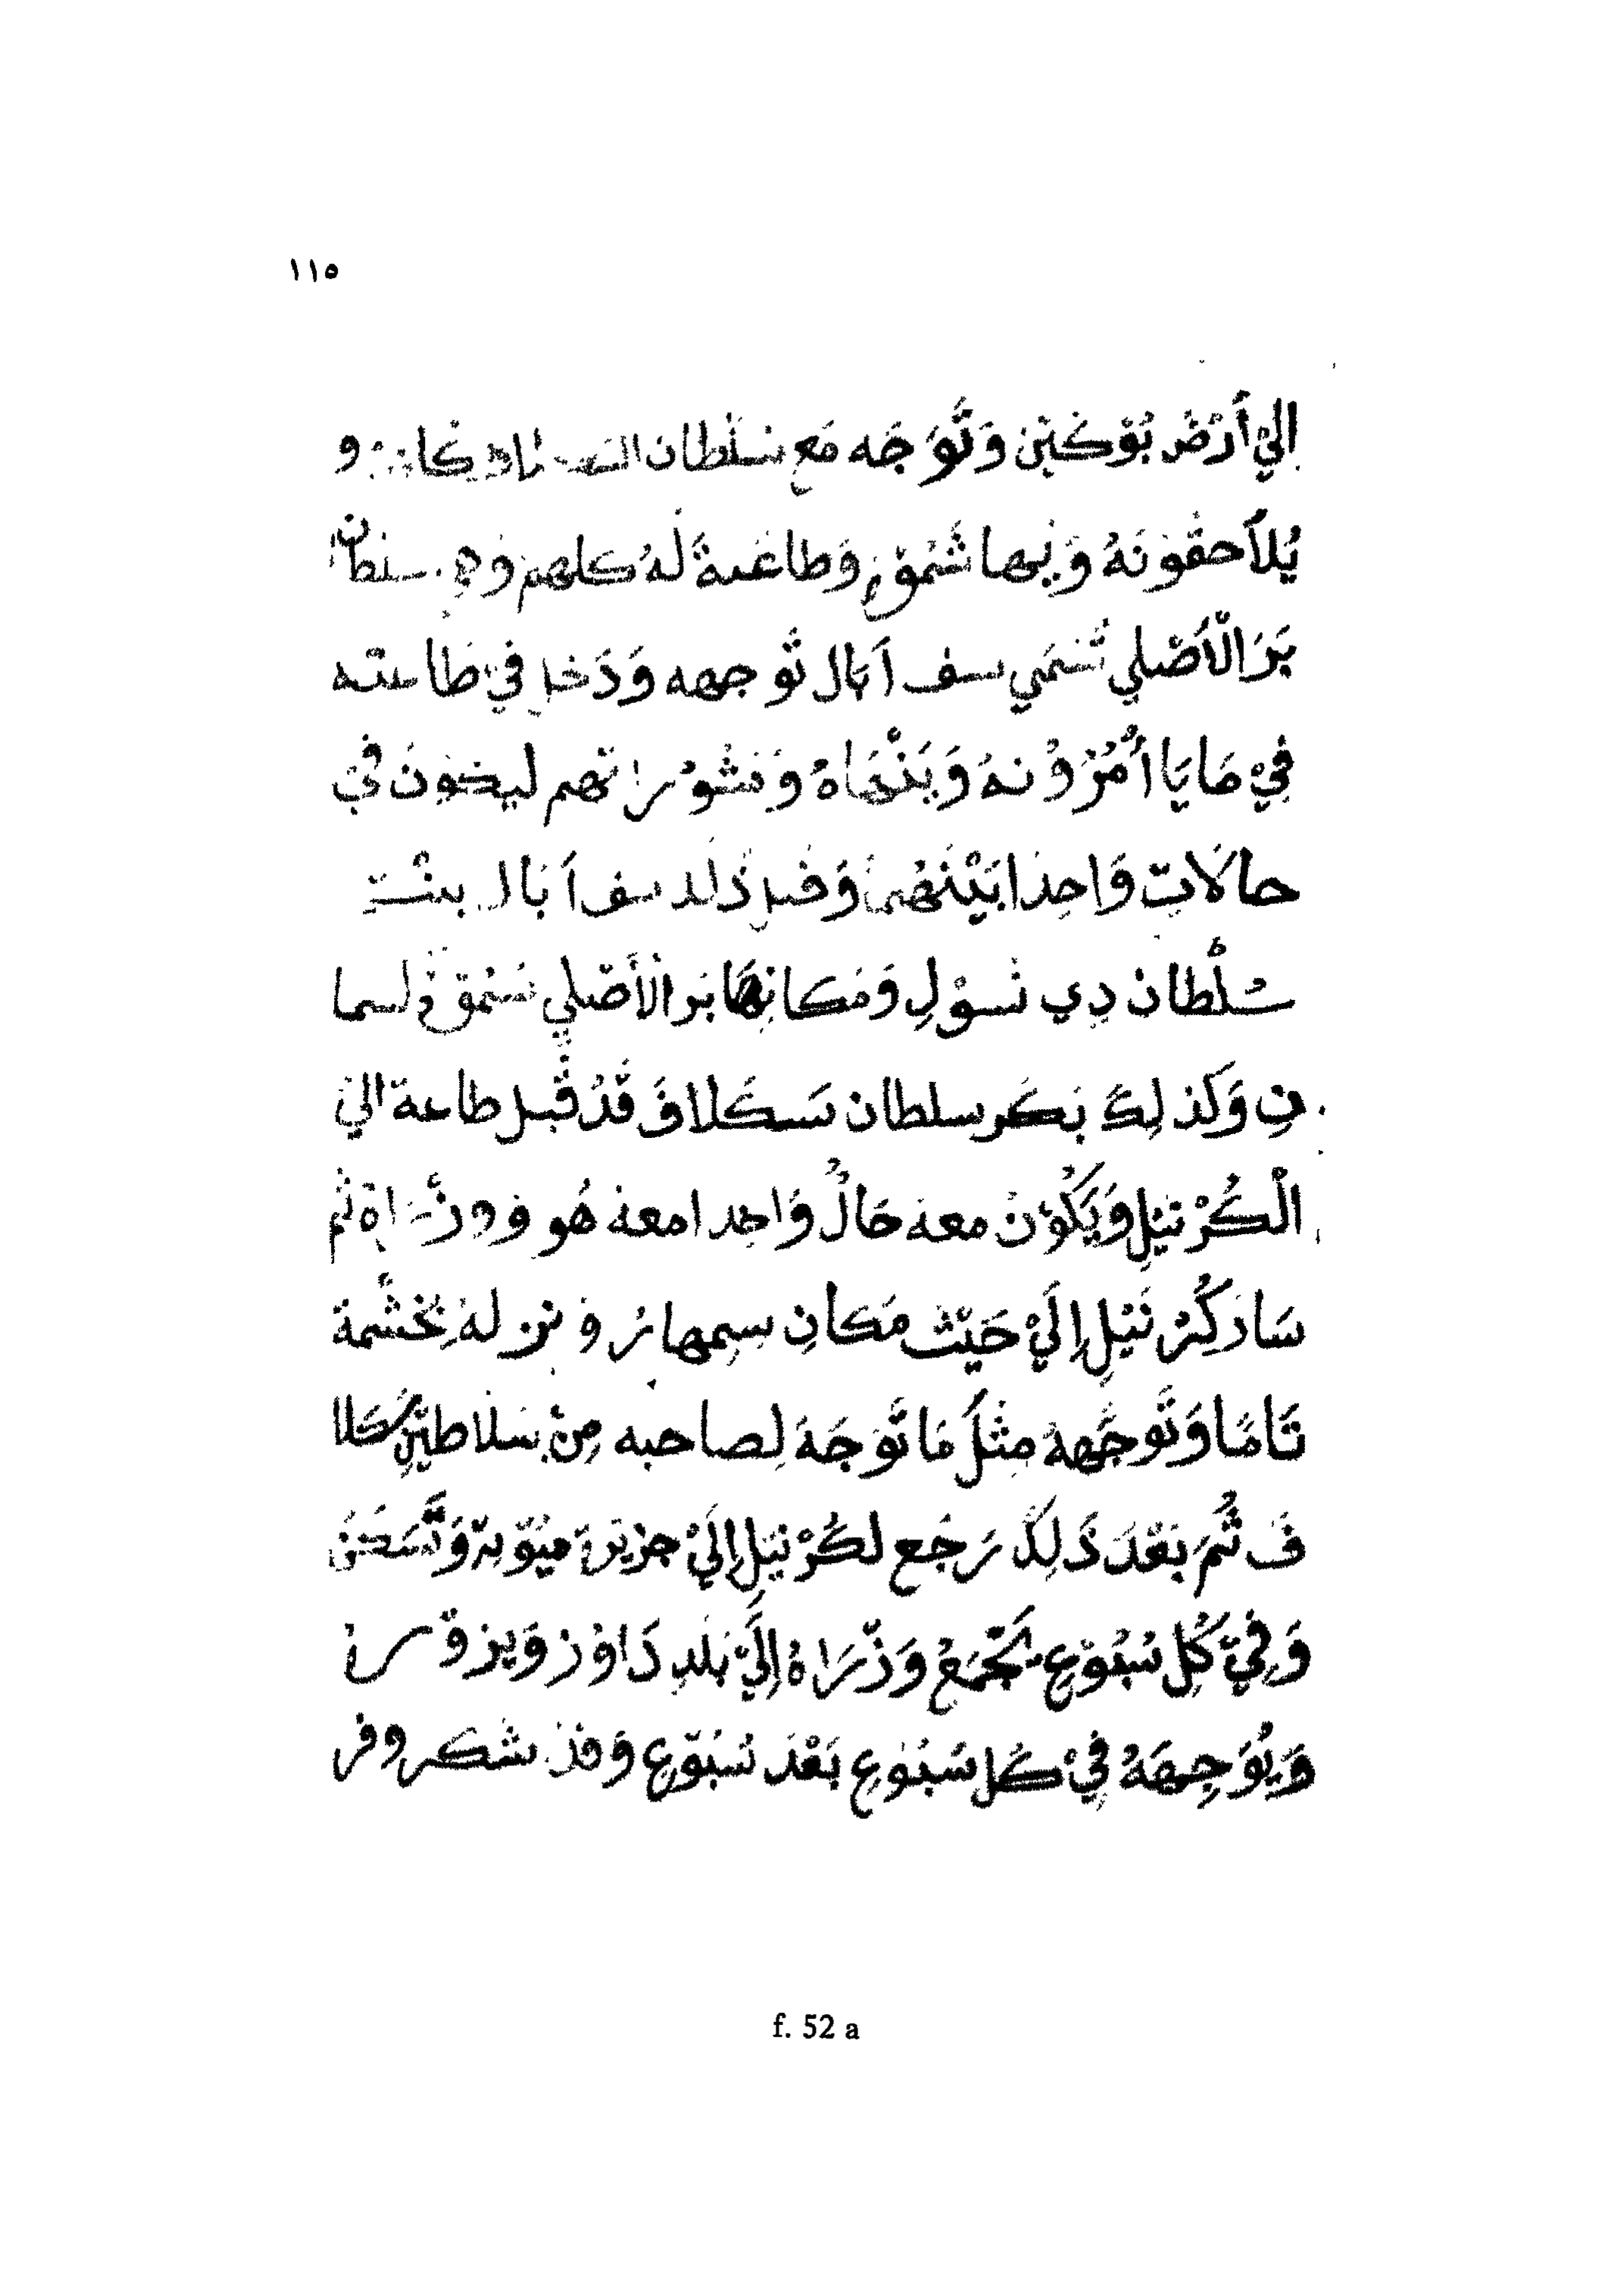 ١١٥
اِلَيْ أَرْضِ بُوْكَيْنْ وَتَّوَجَه مَع سُلْطَان و
يُلاَحقُوْنَهُ وَنِيها شَمُوْنِ وَطاعَةً لَهُ كلهم
بَرَ الْأَصْلِي تُسَمَي سف اَبَال تَوجهه وَدَخل فِيْ طَاعته
فِيْ مَا يَا اُمُرُوْنهُ وَيَنْهَاهُ وَمَشُوْراتهم ليكُونَ فِي
حالَاتِ وَاحِدَا بَيْنَهُمَا وَقبل ذَلك سف اَبَال بنْت
سُلْطان دِي نسُوْلِ وَمَكانِهَا بَر الْأَصْلِي
نِ وَكَذ لِكَ بَكَر سلطان سَكَلافَ قَدْ قَبل طاعة الي
الْكُرْنَيْلِ وَيَكُوْنُ معهُ حَالُ وَاحِدا معهُ هُو وو زَرَاهُ ثم
سَارَ كُرْنَيْلِ إِلَيْ حَيْث مَكانِ سِمِهارُ وَ نزل لهُ بِحَشْمة
تَامًا وَتَوجَّههُ مِثْلَ مَا تَّوَجَهَ لِصاحبه مِنْ سَلاطِيْنِ سَكَلا
فَ ثُمَ بَعْدَ ذَلِكَ رَجَع لكُرْنَيْلِ إِلَيْ جزيْرَةِ مَيُوْتِه وَتَّسَكَنَ
وَفِيْ كُلِ سُبُوْعِ يَجْتَمِعُ وَزَرَاهُ اِلَيْ بَلَدِ دَاوُزْ وَيزوْرنْ
وَيُوَجِهَهُ فِيْ كُل سُبُوْعِ بَعْدَ سُبُوْعِ وَقدْ شكروفر
f. 52 a